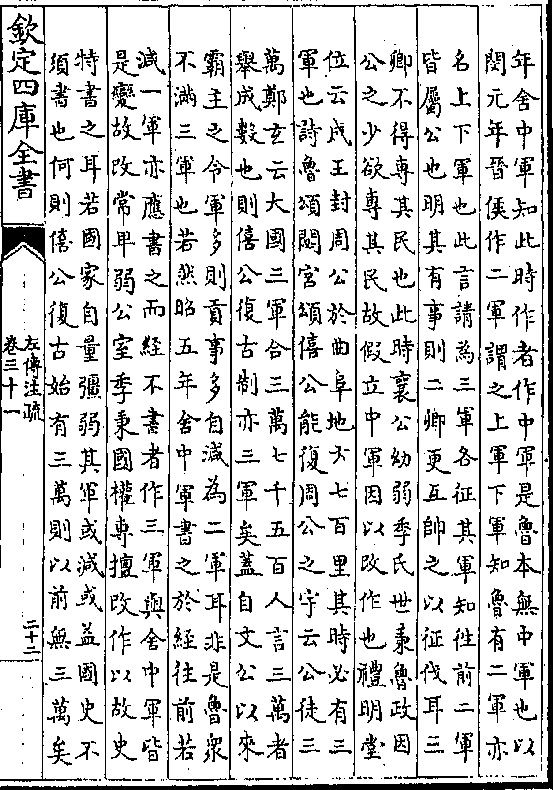 年舍中軍知此時作者作中軍是魯本無中軍也以
閔元年晉侯作二軍謂之上軍下軍知魯有二軍亦
名上下軍也此言請為三軍各征其軍知往前二軍
皆屬公也明其有事則二卿更互帥之以征伐耳三
卿不得專其民也此時襄公幼弱季氏世秉魯政因
公之少欲專其民故假立中軍因以改作也禮明堂
位云成王封周公於曲阜地方七百里其時必有三
軍也詩魯頌閟宮頌僖公能復周公之宇云公徒三
萬鄭玄云大國三軍合三萬七千五百人言三萬者
舉成數也則僖公復古制亦三軍矣蓋自文公以來
霸主之令軍多則貢事多自減為二軍耳非是魯衆
不滿三軍也若然昭五年舍中軍書之於經往前若
減一軍亦應書之而經不書者作三軍與舍中軍皆
是變故改常卑弱公室季秉國權專擅改作以故史
特書之耳若國家自量彊弱其軍或減或益國史不
須書也何則僖公復古始有三萬則以前無三萬矣
欽定四庫全書
左傳注疏
卷三十一
二十二